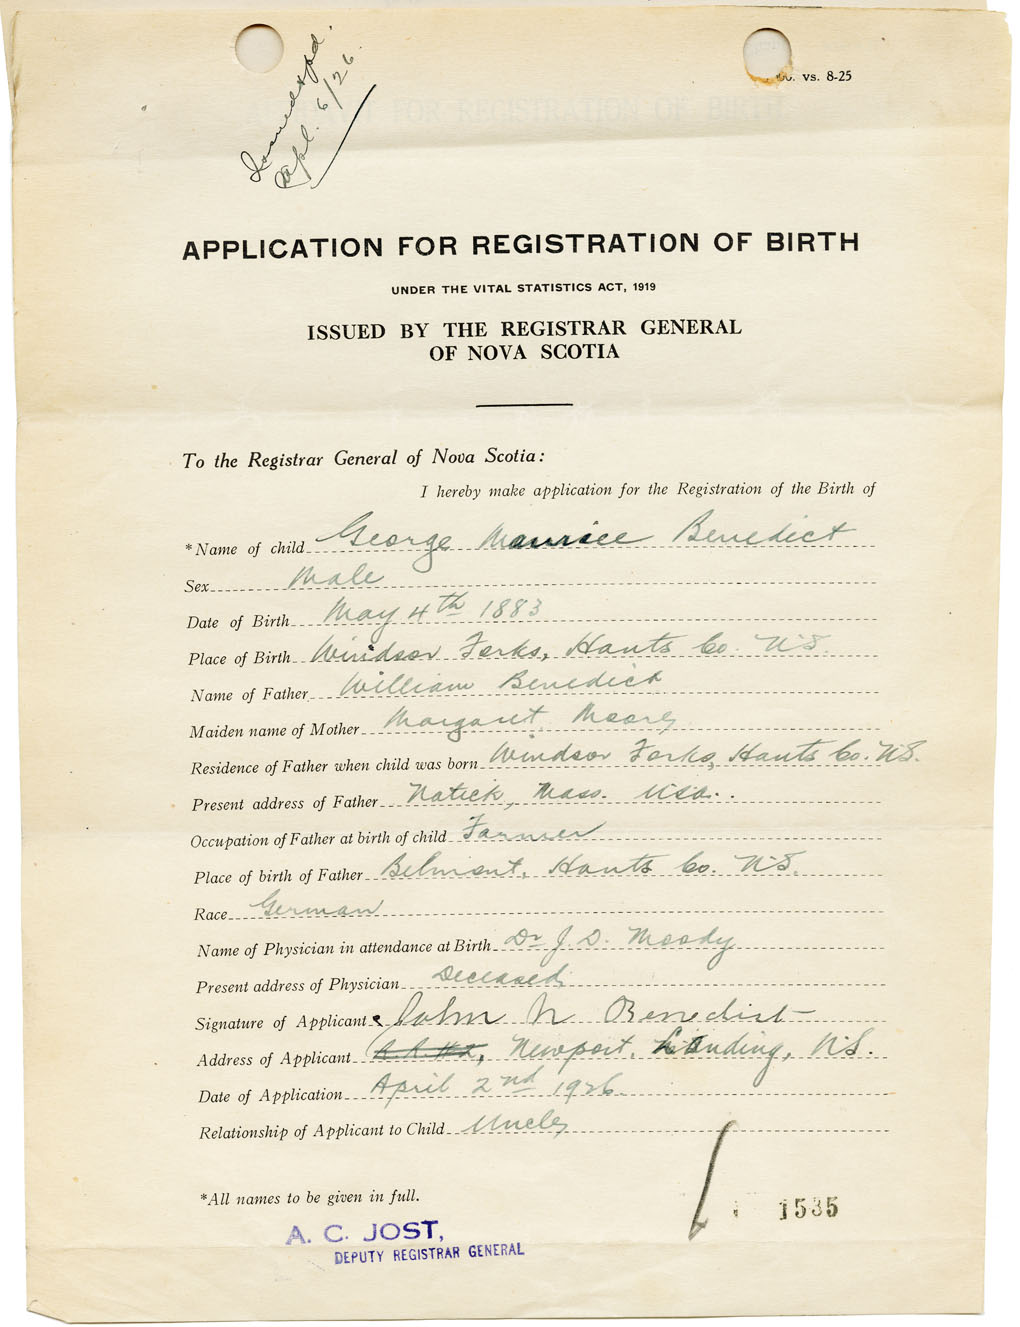 Issued & pd.
Apl. 6/26.
vs. 8-25
APPLICATION FOR REGISTRATION OF BIRTH
UNDER THE VITAL STATISTICS ACT, 1919
ISSUED BY THE REGISTRAR GENERAL
OF NOVA SCOTIA
To the Registrar General of Nova Scotia:
I hereby make application for the Registration of the Birth of
*Name of child George Maurice Benedict
Sex Male
Date of Birth May 4th 1883
Place of Birth Windsor Forks, Hants Co. N.S.
Name of Father William Benedict
Maiden name of Mother Margaret Moore
Residence of Father when child was born Windsor Forks, Hants Co. N.S.
Present address of Father Natick, Mass. USA.
Occupation of Father at birth of child Farmer
Place of birth of Father Belmont, Hants Co. N.S.
Race German
Name of Physician in attendance at Birth Dr J. D. Moody
Present address of Physician Deceased
Signature of Applicant John N Benedict
Address of Applicant Newport, Landing, N.S.
Date of Application April 2nd 1926
Relationship of Applicant to Child Uncle
*All names to be given in full.
1535
A. C. JOST,
DEPUTY REGISTRAR GENERAL